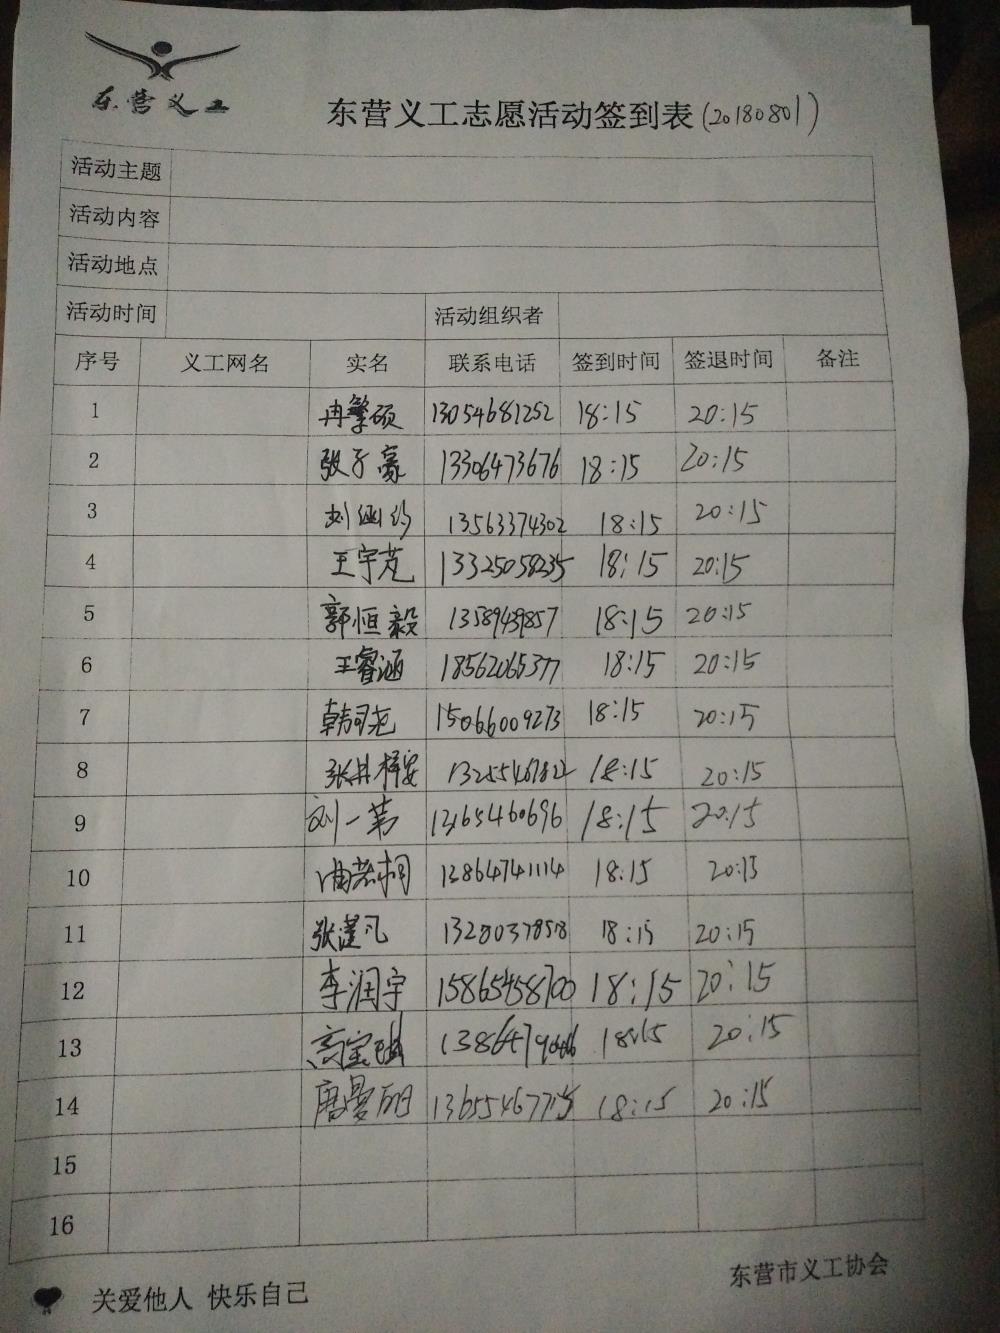 东营义工
东营义工志愿活动签到表(20180801)
活动主题
活动内容
活动地点
活动时间 活动组织者
序号 义工网名 实名 联系电话 签到时间 签退时间 备注
1 冉繁硕 13054681252 18:15 20:15
2 张子豪 13306473676 18:15 20:15
3 刘涵 13563374302 18:15 20:15
4 王宇芃 13325058235 18:15 20:15
5 郭恒毅 18:15 20:15
6 王睿涵 18562065377 18:15 20:15
7 韩可尧 15066009273 18:15 20:15
8 张 梓安 18:15 20:15
9 刘一 13165460696 18:15 20:15
10 曲若桐 13864741114 18:15 20:15
11 张谨凡 18:15 20:15
12 李润宇 15865458700 18:15 20:15
13 高宝 18:15 20:15
14 唐曼 18:15 20:15
15
16
关爱他人 快乐自己
东营市义工协会